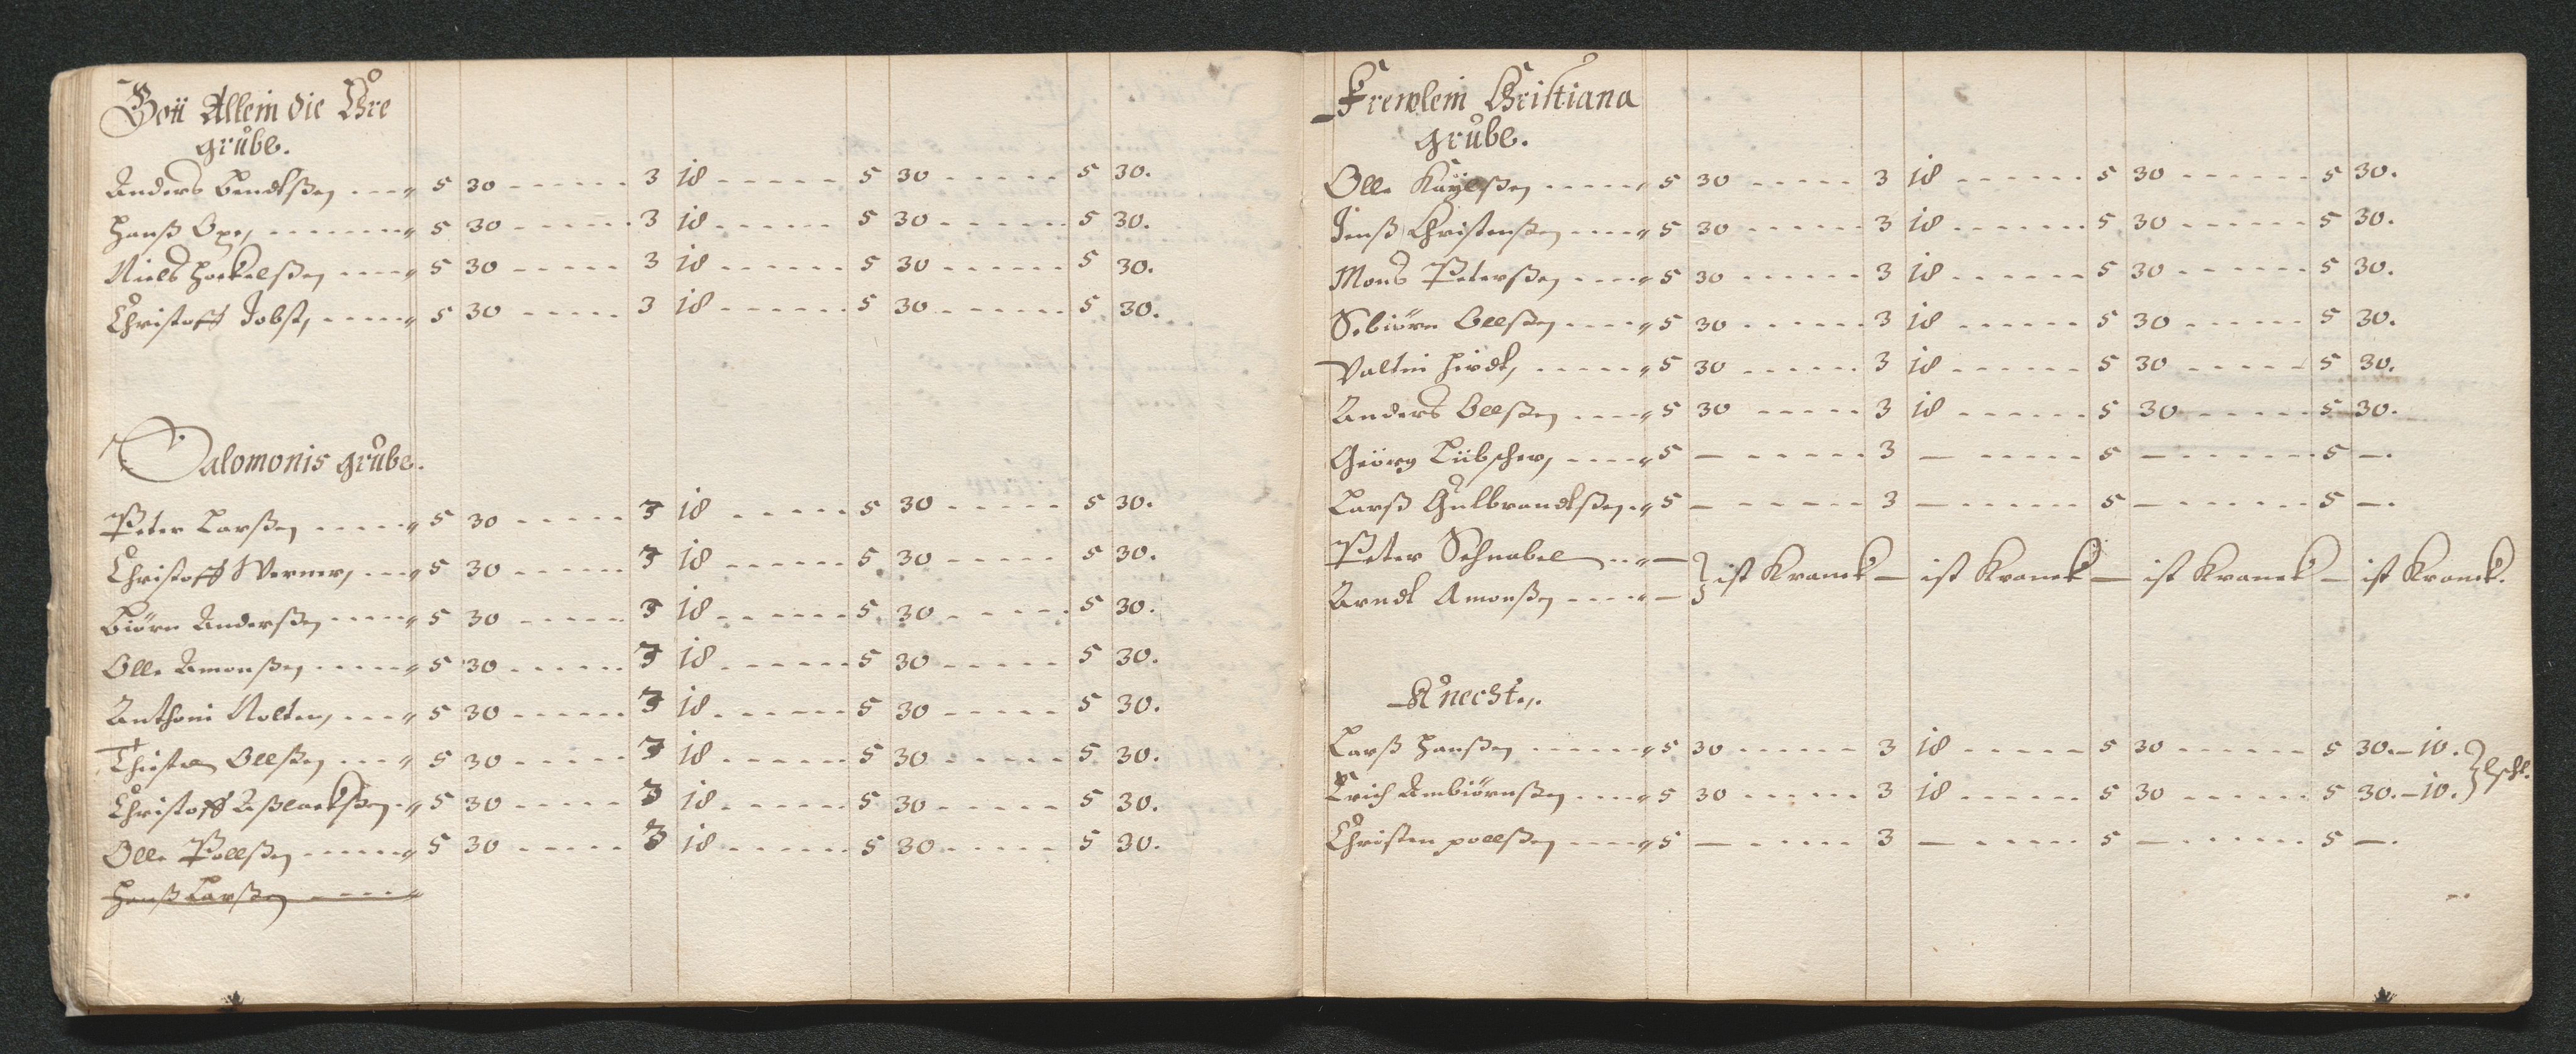 Gott Allein die Ehre
grube.
Anders Bendtßen ---- " 5 30 ------ 3 18 ----- 5 30 ------ 5 30.
Hanß Oxe, -------- " 5 30 ------ 3 18 ------ 5 30 ------ 5 30.
Niels Hockelßen ---- " 5 30 ----- 3 18 ------ 5 30 ------ 5 30.
Christoff Jobst, ----- " 5 30 ----- 3 18 ------ 5 30 ------ 5 30.
Salomonis grube.
Peter Larßen ----- " 5 30 ----- 3 18 ----- 5 30 ----- 5 30.
Christoff Werner, --- " 5 30 ------ 3 18 ------ 5 30 ----- 5 30.
Biörn Anderßen ---- " 5 30 ------ 3 18 ------ 5 30 ----- 5 30.
Olle Amonßen ----- " 5 30 ------ 3 18 ------ 5 30 ----- 5 30.
Anthoni Nolten, --- " 5 30 ------ 3 18 ------ 5 30 ----- 5 30.
Ollßen --- " 5 30 ----- 3 18 ------ 5 30 ----- 5 30.
Christoff Aßlackßen - " 5 30 ----- 3 18 ------ 5 30 ----- 5 30.
Olle Pollßen ------ " 5 30 ----- 3 18 ------ 5 30 ----- 5 30.
Hanß Larßen ----- "
Frewlein Christiana
grube.
Olle Kaÿelßen ----- " 5 30 ----- 3 18 ------ 5 30 ------ 5 30.
Jenß Christenßen ---- " 5 30 ------ 3 18 ------- 5 30 ------ 5 30.
Mons Peterßen ---- " 5 30 ------ 3 18 ------ 5 30 ------ 5 30.
Sebiörn Ollßen ---- " 5 30 ------ 3 18 ------ 5 30 ------ 5 30.
Valtin Hirdt, ----- " 5 30 ------ 3 18 ------ 5 30 ----- 5 30.
Anders Ollßen ---- " 5 30 ----- 3 18 ------ 5 30 ----- 5 30.
Geörg Lübscher, ---- " 5 — ----- 3 — ----- 5 — ------ 5 —.
Larß Gulbrandtßen - " 5 — ----- 3 — ------ 5 — ----- 5 —.
Peter Schnabel -- " — } ist Kranck — ist Kranck — ist Kranck — ist Kranck.
Arndt Amonßen ---- " —
Knechte.
Larß Hanßen ------ " 5 30 ----- 3 18 ----- 5 30 ------ 5 30.—10.
Erich Ambiörnßen ---- " 5 30 ------ 3 18 ------ 5 30 ------ 5 30.—10.
Christen pollßen ---- " 5 — ----- 3 — ----- 5 — ------ 5 —.